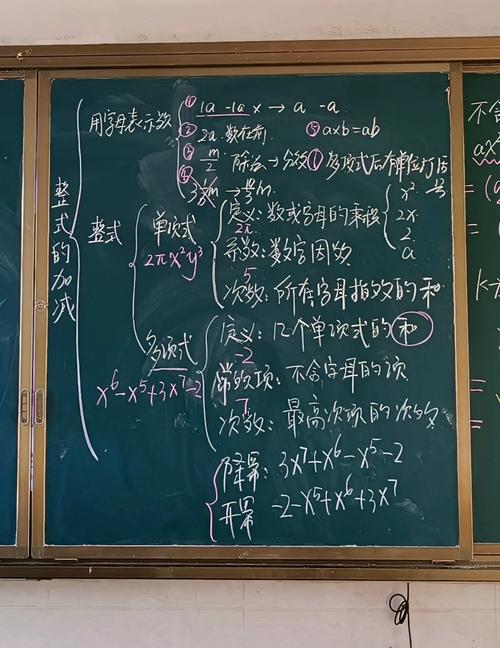 整式的加减
用字母表示数
① 1a -1a × → a -a
② 2a 数在前 ⑤ a×b=ab
③ m/2 除法→分数 ① 多项式后有单位打括号
④
整式
单项式
2πx²y³
定义: 数或字母的乘积
x²
2x
2
a
2π
系数: 数字因数
5
次数: 所有字母指数的和
多项式
x⁶-x⁵+3x⁷-2
定义: 几个单项式的和
-2
常数项: 不含字母的项
7
次数: 最高次项的次数
降幂: 3x⁷+x⁶-x⁵-2
升幂 -2-x⁵+x⁶+3x⁷
不含
ax²
= (
= (
k-
=
=